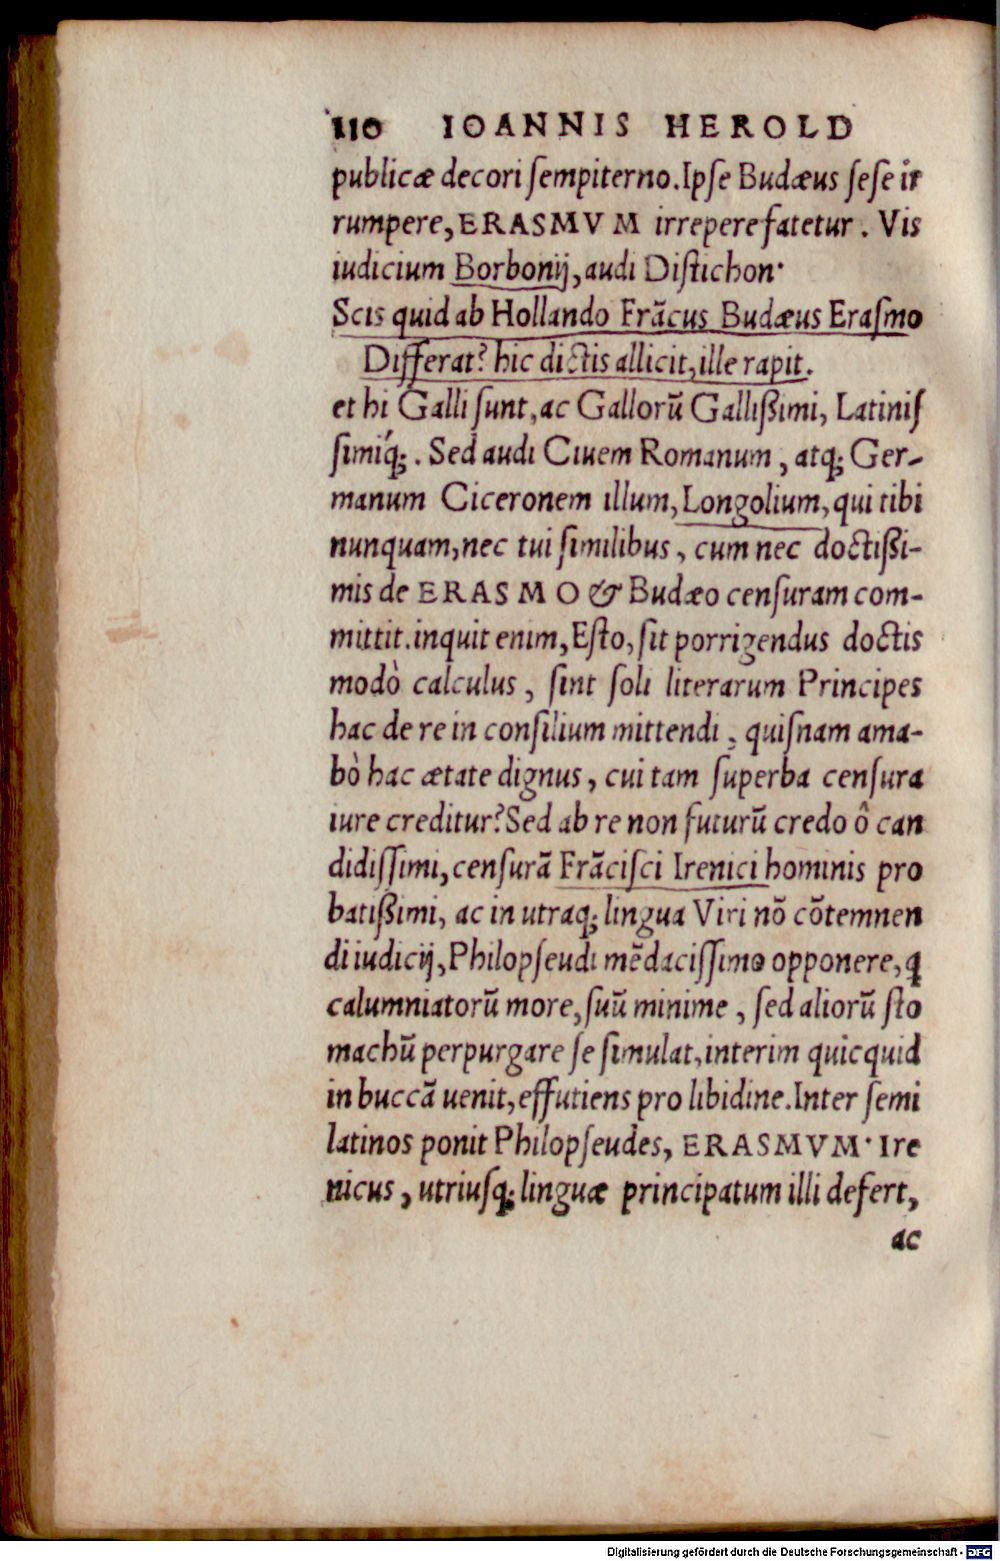 110 IOANNIS HEROLD
publicæ decori ſempiterno. Ipſe Budæus ſeſe ir
rumpere, ERASMVM irrepere fatetur. Vis
iudicium Borbonij, audi Diſtichon·
Scis quid ab Hollando Frãcus Budæus Eraſmo
Differat? hic dictis allicit, ille rapit.
et hi Galli ſunt, ac Gallorũ Gallißimi, Latiniſ
ſimiq́;. Sed audi Ciuem Romanum, atq; Ger-
manum Ciceronem illum, Longolium, qui tibi
nunquam, nec tui ſimilibus, cum nec doctißi-
mis de ERASMO & Budæo cenſuram com-
mittit. inquit enim, Eſto, ſit porrigendus doctis
modò calculus, ſint ſoli literarum Principes
hac de re in conſilium mittendi, quiſnam ama-
bò hac ætate dignus, cui tam ſuperba cenſura
iure creditur? Sed ab re non futurũ credo ô can
didiſſimi, cenſurã Frãciſci Irenici hominis pro
batißimi, ac in utraq; lingua Viri nõ cõtemnen
di iudicij, Philopſeudi mẽdaciſſimo opponere, ꝗ
calumniatorũ more, ſuũ minime, ſed aliorũ ſto
machũ perpurgare ſe ſimulat, interim quicquid
in buccã uenit, effutiens pro libidine. Inter ſemi
latinos ponit Philopſeudes, ERASMVM· Ire
nicus, utriuſq; linguæ principatum illi defert,
ac
Digitalisierung gefördert durch die Deutsche Forschungsgemeinschaft - DFG